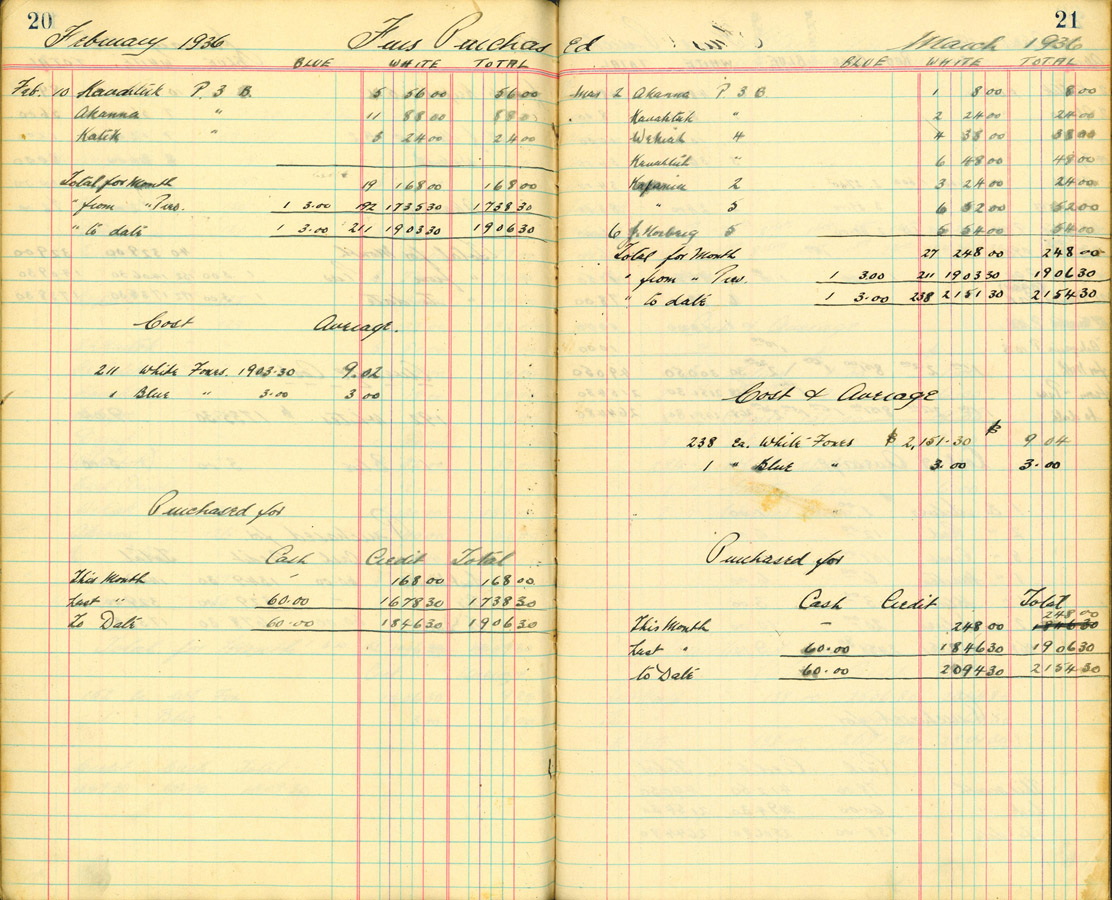 20
February 1936 Furs Purchas
BLUE WHITE TOTAL
Feb. 10 Kavahluk P. 3 B. 5 56 00 56 00
Akanna " 11 88 00 88 00
Katik " 3 24 00 24 00
Total for Month 19 168 00 168 00
" from " Prev. 1 3.00 192 1735 30 1738 30
" to date 1 3.00 211 1903 30 1906 30
Cost Average.
211 White Foxes. 1903.30 9.02
1 Blue " 3.00 3 00
Purchased for
Cash Credit Total
This Month - 168 00 168 00
Last " 60.00 1678 30 1738 30
To Date 60.00 1846 30 1906 30
21
ed March 1936
BLUE WHITE TOTAL
Mar 2 Akanna P 3 B 1 8 00 8 00
Kavahluk " 2 24 00 24 00
4 4 38 00 38 00
Kavahluk " 6 48 00 48 00
2 3 24 00 24 00
" 5 6 52 00 52 00
6 J. 5 5 54 00 54 00
Total for Month 27 248 00 248 00
" from " Prev. 1 3.00 211 1903 30 1906 30
" to date 1 3.00 238 2151 30 2154 30
Cost & Average
238 Ea. White Foxes $ 2,151.30 $ 9 04
1 " Blue " 3.00 3.00
Purchased for
Cash Credit Total
248 00
This Month - 248 00 1846 30
Last " 60.00 1846 30 1906 30
to Date 60.00 2094 30 2154 30